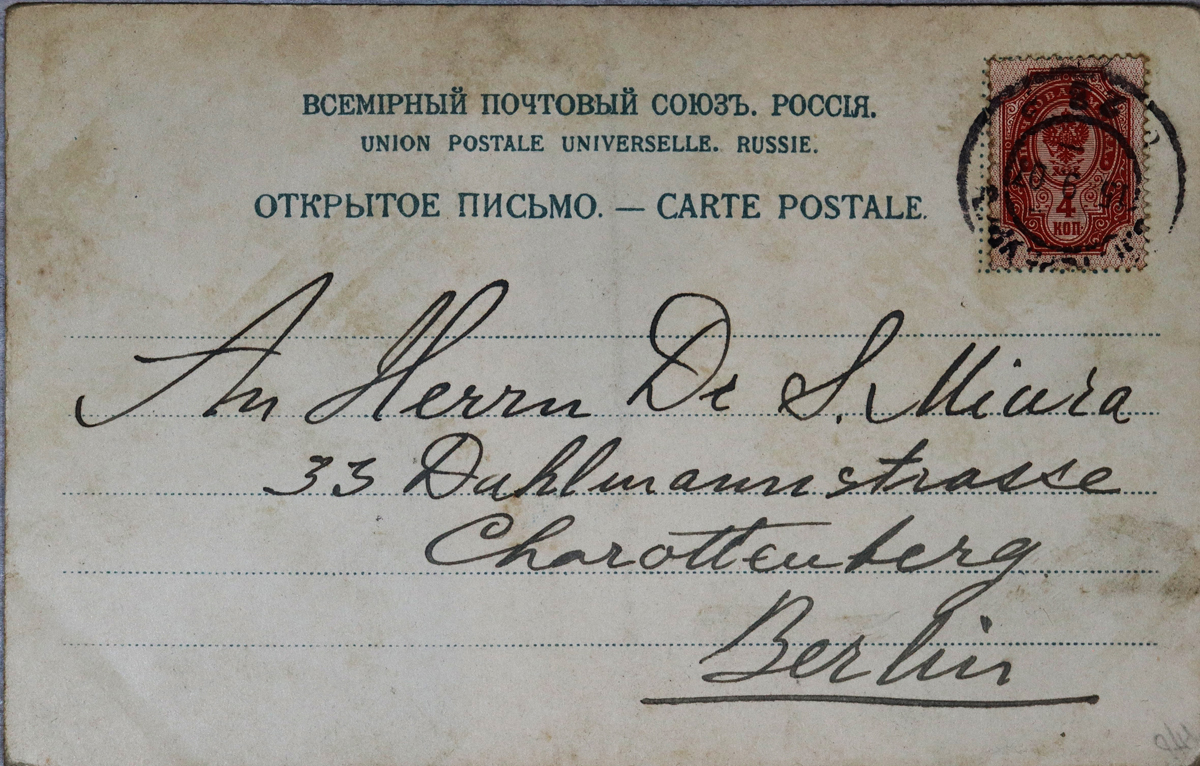 ВСЕМІРНЫЙ ПОЧТОВЫЙ СОЮЗЪ. РОССІЯ.
UNION POSTALE UNIVERSELLE. RUSSIE.
ОТКРЫТОЕ ПИСЬМО. — CARTE POSTALE.
4
КОП.
An Herrn Dr S. Miura
33 Dahlmannstrasse
Charottenberg
Berlin